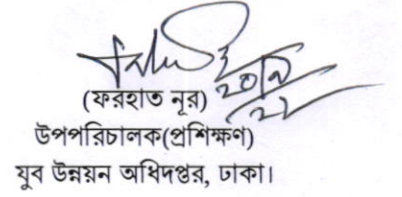 (ফরহাত নূর)
উপপরিচালক(প্রশিক্ষণ)
যুব উন্নয়ন অধিদপ্তর, ঢাকা।